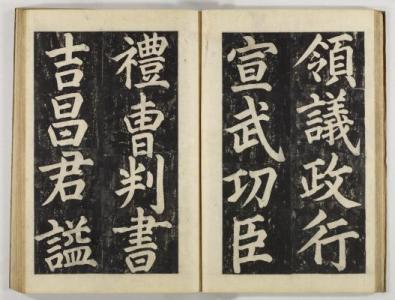 領議政行
宣武功臣
禮曹判書
吉昌君謚